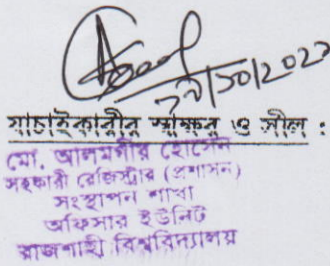 ২৯/১০/২০২৩
যাচাইকারীর স্বাক্ষর ও সীল :
মো. আলমগীর হোসেন
সহকারী রেজিস্ট্রার (প্রশাসন)
সংস্থাপন শাখা
অফিসার ইউনিট
রাজশাহী বিশ্ববিদ্যালয়